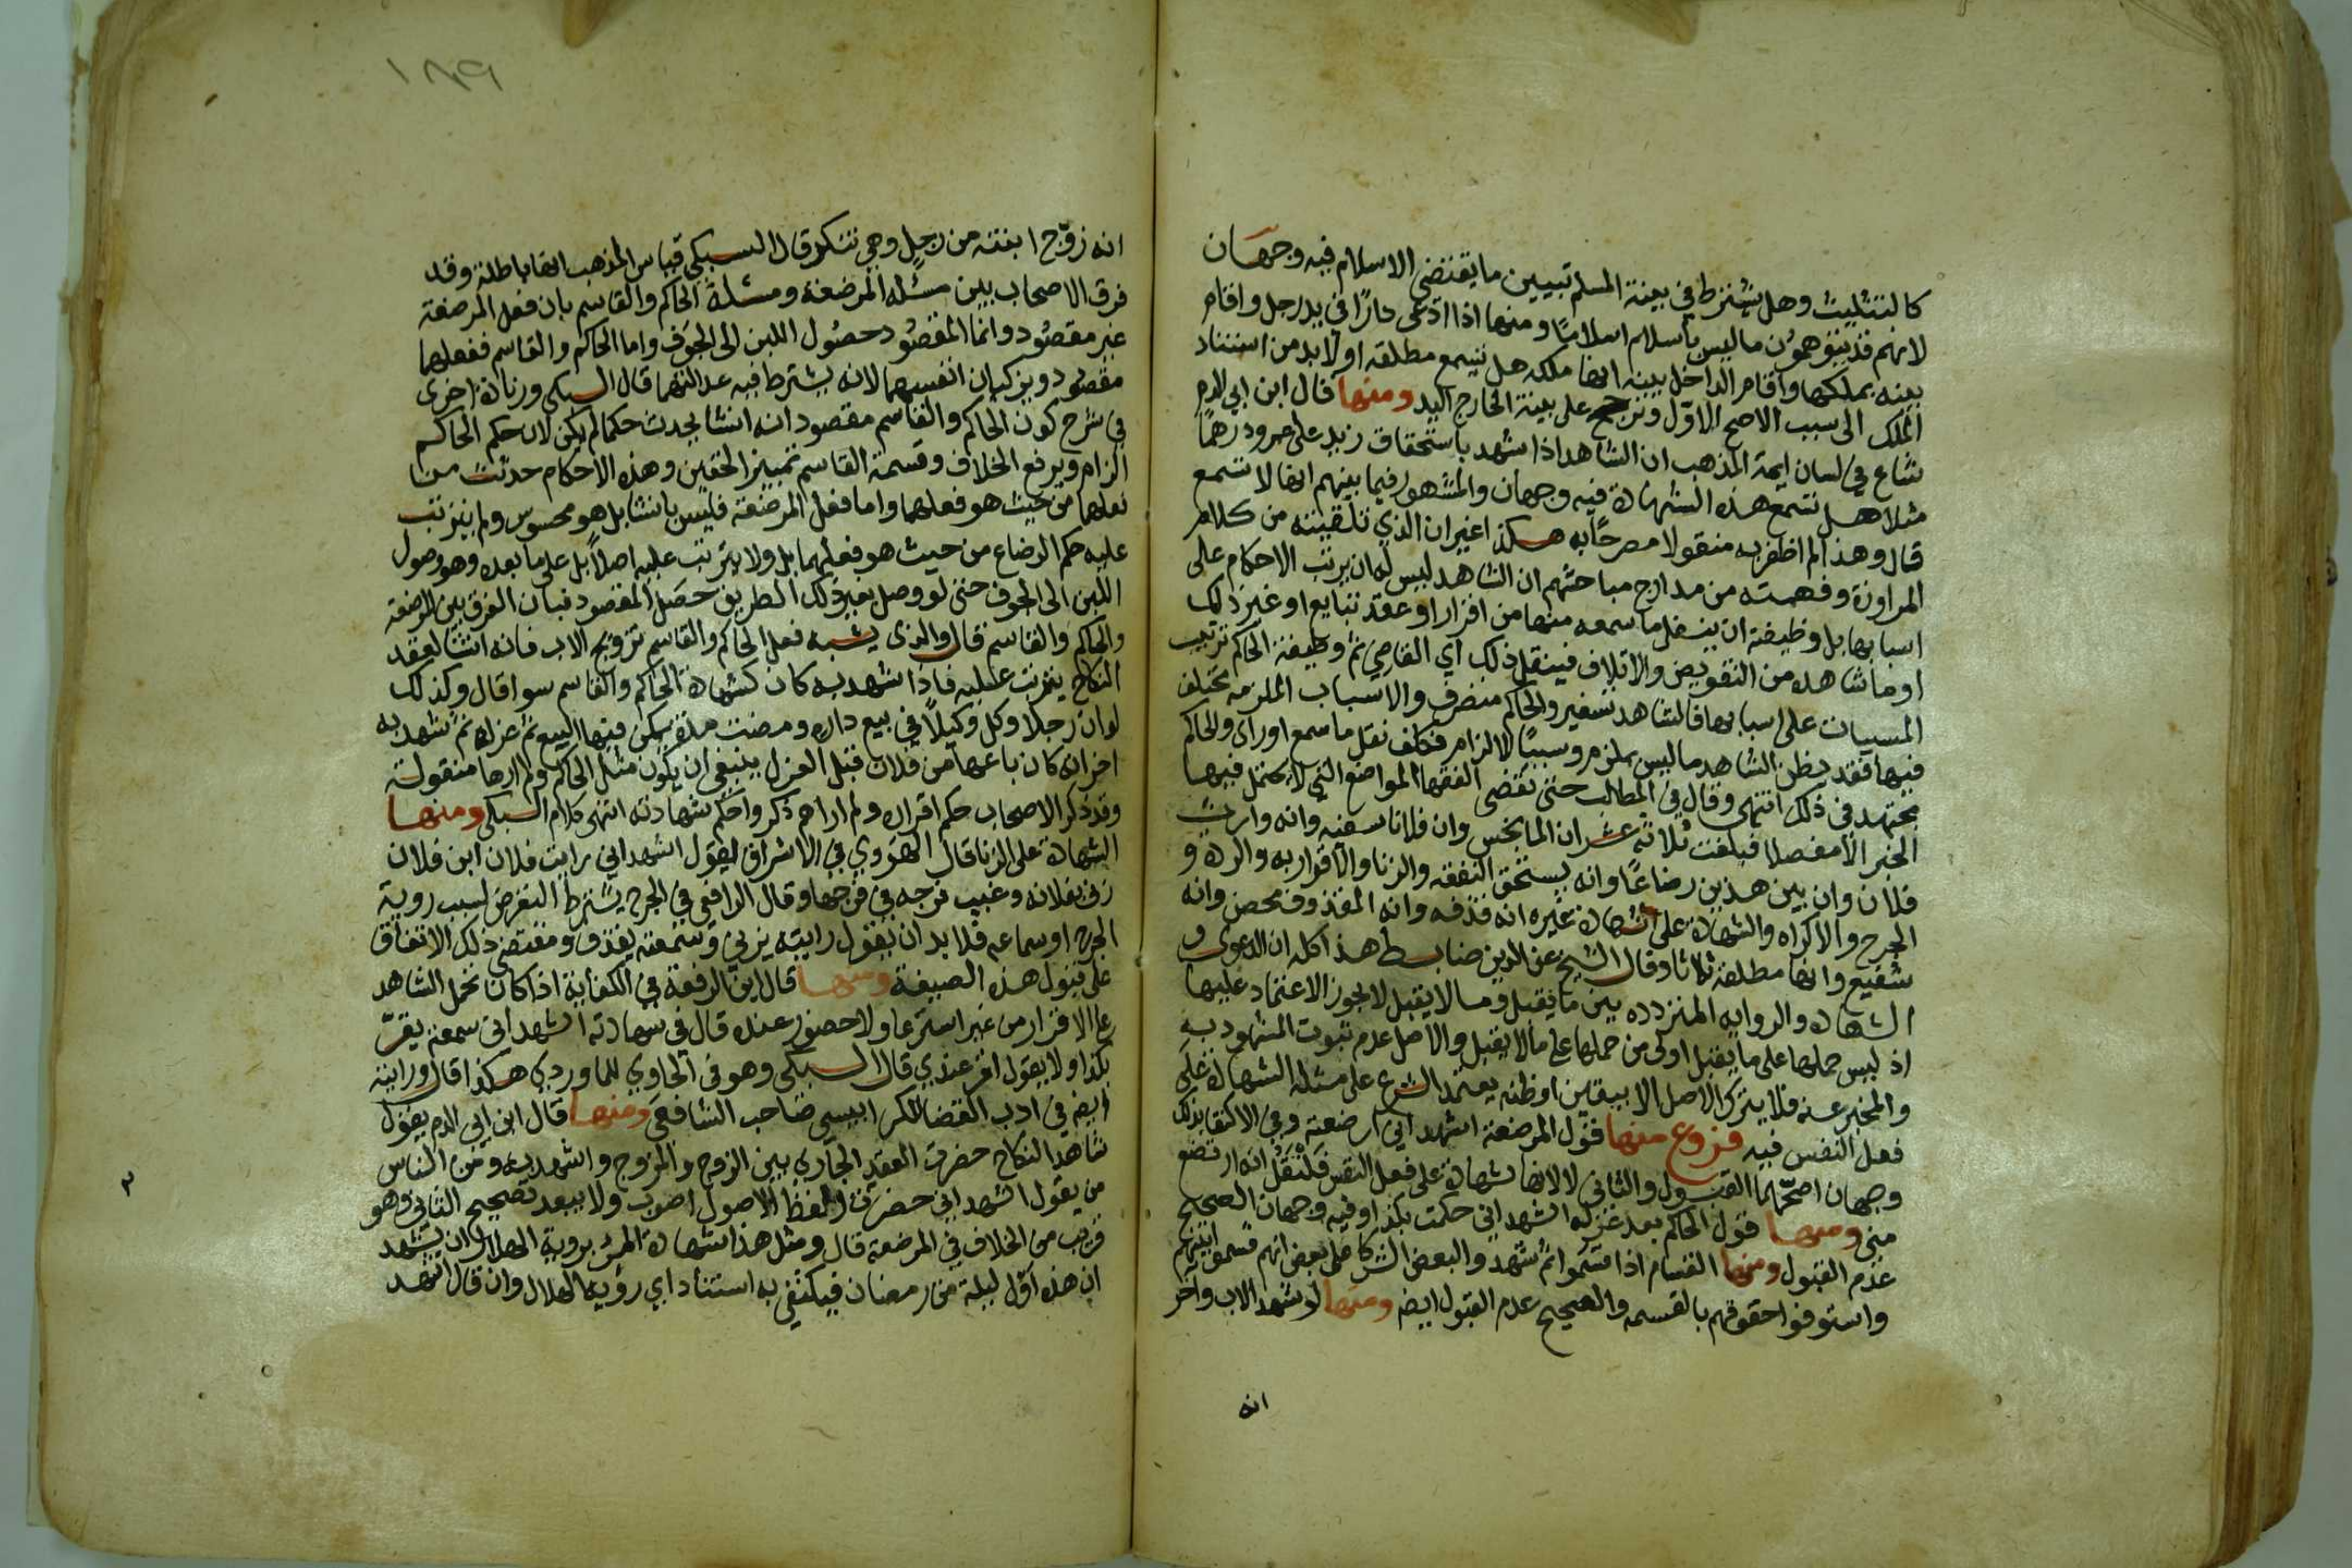 كالتثليث وهل يشترط في بينة المسلم تبيين ما يقتضي الاسلام فيه وجهان
لانهم قد يتوهمون ما ليس باسلام اسلاما ومنها اذا ادعى دارا في يد رجل واقام
بينه بملكها واقام الداخل بينه انها ملكه هل تسمع مطلقه او لا بد من استناد
الملك الى سبب الاصح الاول وترجح على بينة الخارج اليد ومنها قال ابن ابي الدم
شاع في لسان ايمة المذهب ان الشاهد اذا شهد باستحقاق زيد على عمرو درهما
مثلا هل تسمع هذه الشهادة فيه وجهان والمشهور فيما بينهم انها لا تسمع
قال وهذا لم اظفر به منقولا مصرحا به هكذا غير ان الذي تلقيته من كلام
المراوزة وفهمته من مدارج مباحثهم ان الشاهد ليس له ان يرتب الاحكام على
اسبابها بل وظيفته ان ينقل ما سمعه منها من اقرار او عقد تبايع او غير ذلك
او ما شاهده من التقويض والاتلاف فينقل ذلك اي القاضي ثم وظيفة الحاكم ترتيب
المسببات على اسبابها فالشاهد سفير والحاكم متصرف والاسباب الملزمه تختلف
فيها فقد يظن الشاهد ما ليس بملزم وسببا للالزام فكلف نقل ما سمع او راى والحاكم
مجتهد في ذلك انتهى وقال في المطالب حتى تقضى الفقها المواضع التي لا يحتمل فيها
الخبر الا مفصلا فبلغت ثلاثة عشر ان الما نجس وان فلانا سفيه وانه وارث
فلان وان بين هذين رضاعا وانه يستحق النفقه والزنا والاقرار به والردة و
الجرح والاكراه والشهادة على شهادة غيره انه قذفه وانه المقذوف محصن وانه
شفيع وانها مطلقة ثلاثا وقال الشيخ عز الدين ضابط هذا كله ان الدعوى و
الشهاده والروايه المتردده بين ما يقبل وما لا يقبل لا يجوز الاعتماد عليها
اذ ليس حملها على ما يقبل اولى من حملها على ما لا يقبل والاصل عدم ثبوت المشهود به
والمخبر عنه فلا يترك الاصل الا بيقين او ظنه يعتمد الشرع على مثله الشهادة على
فعل النفس فيه فروع منها قول المرضعة اشهد اني ارضعته وفي الاكتفا بذلك
وجهان اصحهما القبول والثاني لا لانها شهادة على فعل النفس فلتقل انه ارتضع
مني ومنها قول الحاكم بعد عزله اشهد اني حكمت بكذا وفيه وجهان الصحيح
عدم القبول ومنها القسام اذا قسموا ثم شهدوا لبعض الشركا على بعض انهم قسموا بينهم
واستوفوا حقوقهم بالقسمه والصحيح عدم القبول ايضا ومنها لو شهد الاب واخر
انه
١٨٩
انه زوج ابنته من رجل وهي تنكر قال السبكي قياس المذهب انها باطلة وقد
فرق الاصحاب بين مسئله المرضعة ومسئلة الحاكم والقاسم بان فعل المرضعة
غير مقصود وانما المقصود حصول اللبن الى الجوف واما الحاكم والقاسم ففعلهما
مقصود ويزكيان انفسهما لانه يشترط فيه عدالتهما قال السبكي وزيادة اخرى
في شرح كون الحاكم والقاسم مقصود انه انشا يحدث حكما لم يكن لان حكم الحاكم
الزام ويرفع الخلاف وقسمة القاسم تمييز الحقين وهذه الاحكام حدثت من
فعلهما من حيث هو فعلهما واما فعل المرضعة فليس بانشا بل هو محسوس ولم يترتب
عليه حكم الرضاع من حيث هو فعلهما بل ولا يترتب عليه اصلا بل على ما بعده وهو وصول
اللبن الى الجوف حتى لو وصل بغير ذلك الطريق حصل المقصود فبان الفرق بين المرضعة
والحاكم والقاسم قال والذي يشبه فعل الحاكم والقاسم تزويج الاب فانه انشا لعقد
النكاح يترتب عليه فاذا شهد به كان كشهادة الحاكم والقاسم سوا قال وكذلك
لو ان رجلا وكل وكيلا في بيع داره ومضت مدة يمكن فيها البيع ثم عزله ثم شهد به
اخر انه كان باعها من فلان قبل العزل ينبغي ان يكون مثل الحاكم ولم ارها منقولة
وقد ذكر الاصحاب حكم اقراره ولم ارهم ذكروا حكم شهادته انتهى كلام السبكي ومنها
الشهادة على الزنا قال الهروي في الاشراق يقول اشهد اني رايت فلان ابن فلان
زنى بفلانه وغيب فرجه في فرجها وقال الرافعي في الجرح يشترط التعرض لسبب روية
الجرح او سماعه فلا بد ان يقول رايته يزني وسمعته يقذف ومقتضى ذلك الاتفاق
على قبول هذه الصيغة ومنها قال ابن الرفعة في الكفاية اذا كان تحمل الشاهد
على الاقرار من غير استرعا ولا حضور عنده قال في شهادته اشهد اني سمعته يقر
بكذا ولا يقول اقر عندي قال السبكي وهو في الحاوي للماوردي هكذا قال ورايته
ايضا في ادب القضا للكرابيسي صاحب الشافعي ومنها قال ابن ابي الدم يقول
شاهد النكاح حضرت العقد الجاري بين الزوج والمزوج واشهد به ومن الناس
من يقول اشهد اني حضرت اللفظ الاصول اصوب ولا يبعد تصحيح الثاني وهو
قريب من الخلاف في المرضعة قال ومثل هذا شهادة المرء بروية الهلال ان يشهد
ان هذه اول ليلة من رمضان فيكتفي به استنادا اي روية الهلال وان قال اشهد